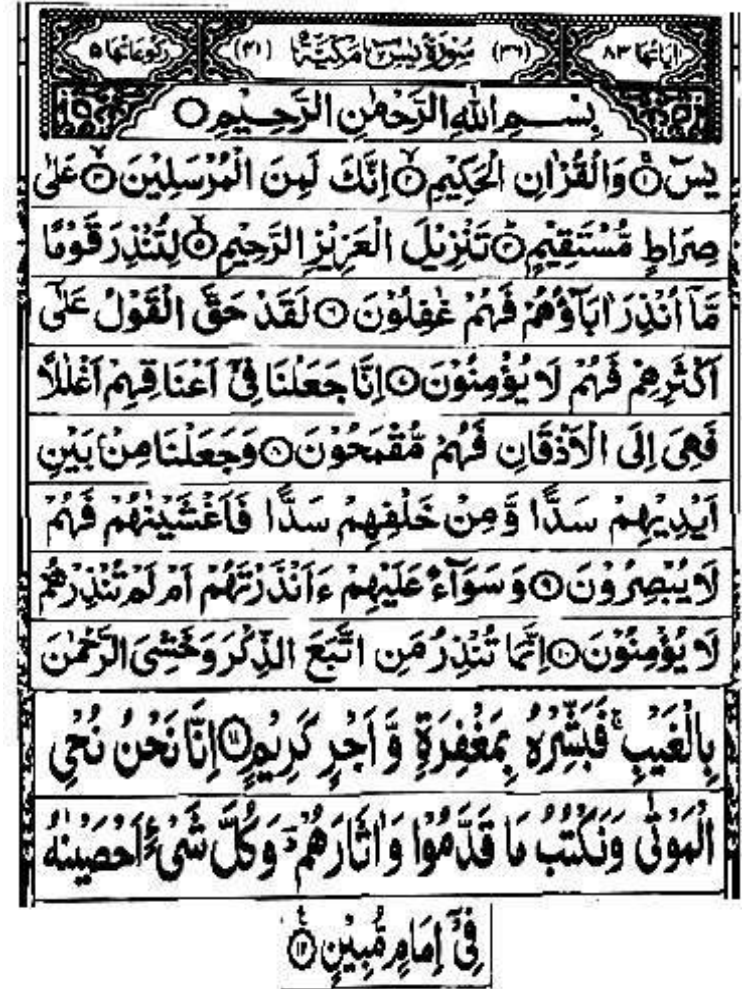 اٰیَاتُهَا ٨٣ (٣٦) سُوْرَةُ یٰسٓ مَكِّیَّةٌ (٤١) رُكُوْعَاتُهَا ٥
بِسْمِ اللّٰهِ الرَّحْمٰنِ الرَّحِیْمِ ○
یٰسٓ ۝١ وَالْقُرْاٰنِ الْحَكِیْمِ ۝٢ اِنَّكَ لَمِنَ الْمُرْسَلِیْنَ ۝٣ عَلٰی
صِرَاطٍ مُّسْتَقِیْمٍ ۝٤ تَنْزِیْلَ الْعَزِیْزِ الرَّحِیْمِ ۝٥ لِتُنْذِرَ قَوْمًا
مَّاۤ اُنْذِرَ اٰبَآؤُهُمْ فَهُمْ غٰفِلُوْنَ ۝٦ لَقَدْ حَقَّ الْقَوْلُ عَلٰۤی
اَكْثَرِهِمْ فَهُمْ لَا یُؤْمِنُوْنَ ۝٧ اِنَّا جَعَلْنَا فِیْۤ اَعْنَاقِهِمْ اَغْلٰلًا
فَهِیَ اِلَی الْاَذْقَانِ فَهُمْ مُّقْمَحُوْنَ ۝٨ وَجَعَلْنَا مِنْۢ بَیْنِ
اَیْدِیْهِمْ سَدًّا وَّ مِنْ خَلْفِهِمْ سَدًّا فَاَغْشَیْنٰهُمْ فَهُمْ
لَا یُبْصِرُوْنَ ۝٩ وَ سَوَآءٌ عَلَیْهِمْ ءَاَنْذَرْتَهُمْ اَمْ لَمْ تُنْذِرْهُمْ
لَا یُؤْمِنُوْنَ ۝١٠ اِنَّمَا تُنْذِرُ مَنِ اتَّبَعَ الذِّكْرَ وَ خَشِیَ الرَّحْمٰنَ
بِالْغَیْبِ ۚ فَبَشِّرْهُ بِمَغْفِرَةٍ وَّ اَجْرٍ كَرِیْمٍ ۝١١ اِنَّا نَحْنُ نُحْیِ
الْمَوْتٰی وَنَكْتُبُ مَا قَدَّمُوْا وَ اٰثَارَهُمْ ؕ وَ كُلَّ شَیْءٍ اَحْصَیْنٰهُ
فِیْۤ اِمَامٍ مُّبِیْنٍ ۝١٢